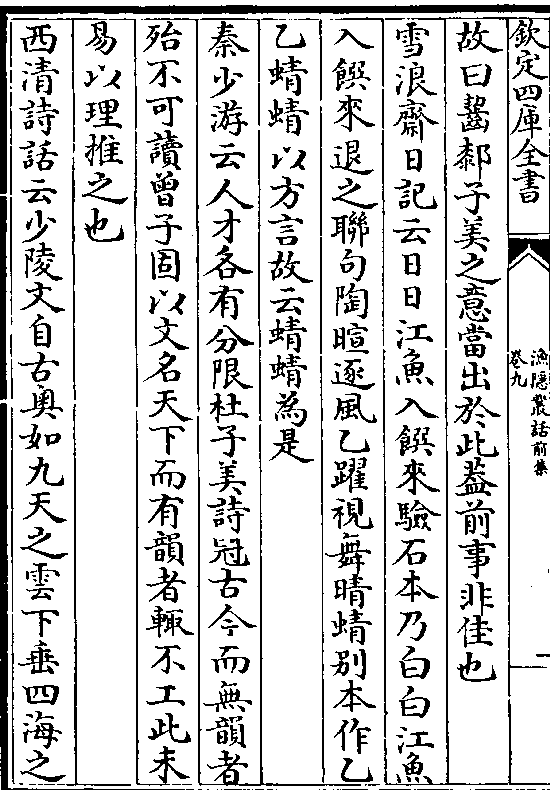 欽定四庫全書
漁隱叢話前集
卷九
一
故曰齧郝子美之意當出於此葢前事非佳也
雪浪齋日記云日日江魚入饌來驗石本乃白白江魚
入饌來退之聯句陶暄逐風乙躍視舞晴蜻别本作乙
乙蜻蜻以方言故云蜻蜻為是
秦少游云人才各有分限杜子美詩冠古今而無韻者
殆不可讀曾子固以文名天下而有韻者輙不工此未
易以理推之也
西清詩話云少陵文自古奥如九天之雲下垂四海之